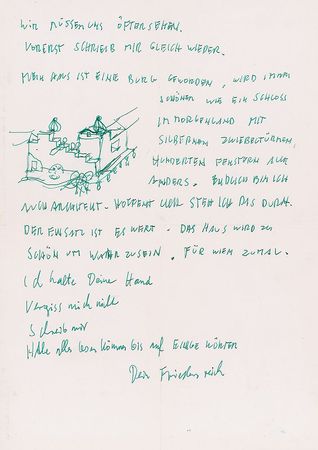 WIR MÜSSEN UNS ÖFTER SEHEN.
VORERST SCHREIB MIR GLEICH WIEDER.
MEIN HAUS IST EINE BURG GEWORDEN, WIRD IMMER
SCHÖNER WIE EIN SCHLOSS
IM MORGENLAND MIT
SILBERNEN ZWIEBELTÜRMEN,
HUNDERTEN FENSTERN ALLE
ANDERS. ENDLICH BIN ICH
AUCH ARCHITEKT. HOFFENTLICH STEH ICH DAS DURCH.
DER EINSATZ IST ES WERT. DAS HAUS WIRD ZU
SCHÖN UM WAHR ZU SEIN. FÜR WIEN ZUMAL.
Ich halte Deine Hand
Vergiss mich nicht
Schreib mir
Habe alles bis auf Ewige
Dein Friedensreich